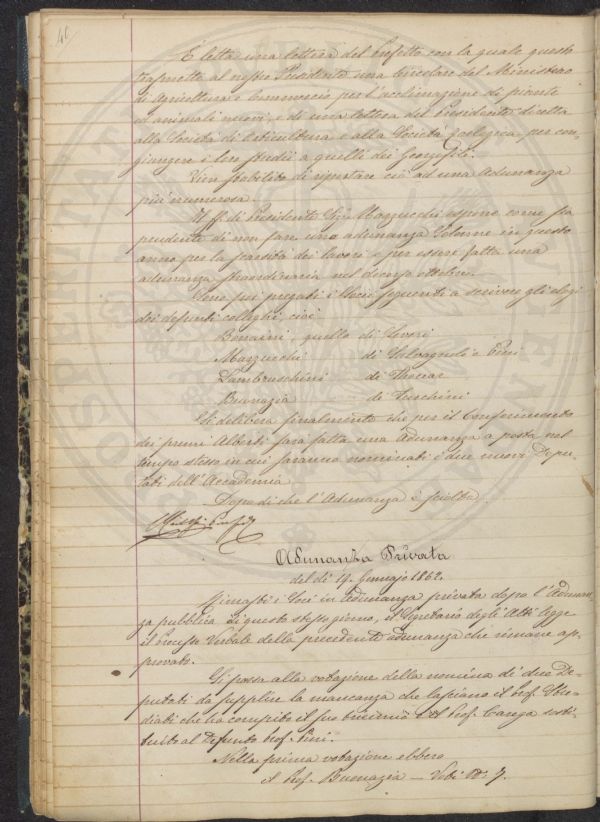 40
È letta una lettera del Prefetto con la quale questo
trasmette al nostro Presidente una Circolare del Ministero
di Agricoltura e Commercio per l'acclimazione di piante
ed animali nuovi, e di una lettera del Presidente diretta
alla Società di Orticultura e alla Società Zoologica per con-
giungere i loro studii a quelli dei Georgofili.
Vien stabilito di riportare ciò ad una Adunanza
più numerosa.
Il ff. di Presidente Sig. Mazzucchi espone come sia
prudente di non fare una adunanza Solenne in questo
anno per la scarsità dei lavori e per essere fatta una
adunanza straordinaria nel decorso ottobre.
Sono poi pregati i Socii seguenti a scrivere gli elogi
dei defunti colleghi, cioè
Bonaini, quello di
Mazzucchi di Salvagnoli e Pini
Lambruschini di Thouar
Buonazia di
Si delibera finalmente che per il Conferimento
dei premi Alberti sarà fatta una Adunanza a posta nel
tempo stesso in cui saranno nominati i due nuovi Depu-
tati dell'Accademia
Dopo di che l'Adunanza è sciolta.
Adunanza Privata
del dì 19. Gennajo 1862.
Rimasti i Soci in Adunanza privata dopo l'Adunan-
za pubblica di questo stesso giorno, il Segretario degli Atti legge
il Processo Verbale della precedente adunanza che rimane ap-
provato.
Si passa alla votazione della nomina di due De-
putati da supplire la mancanza che lasciano il Prof.
che ha compito il suo e il Prof. Carega sosti-
tuito al Defunto Prof. Pini.
Nella prima votazione ebbero
il Prof. Buonazia — Voti N° 7.